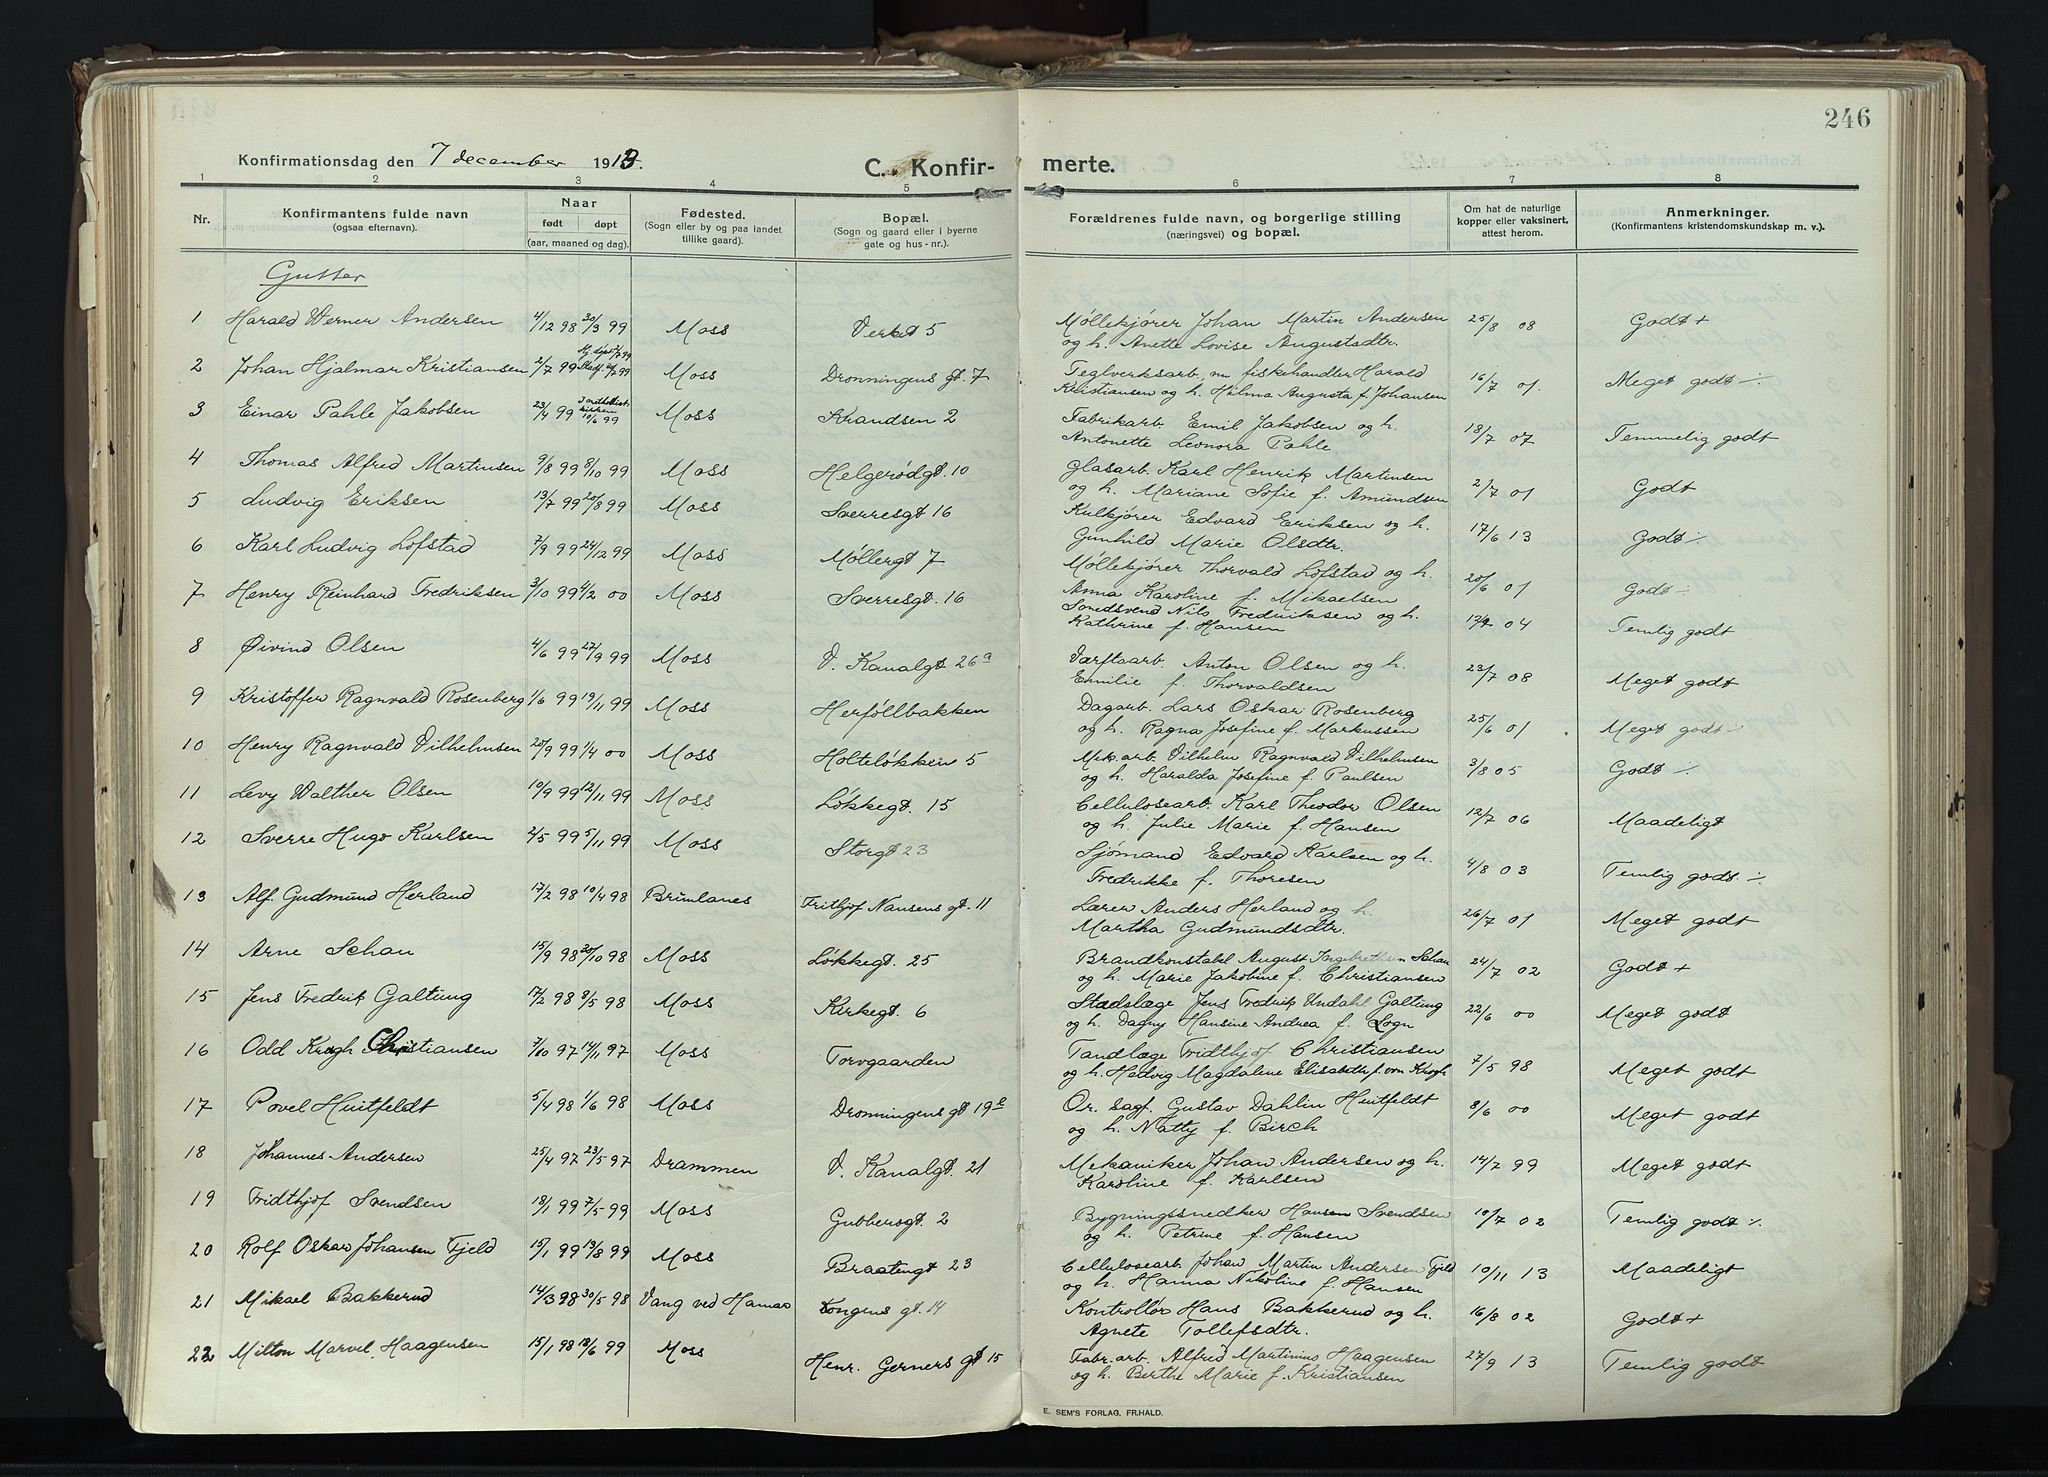 246
Konfirmationsdag den 7 december 1913. C. Konfirmerte.
1 2 3 4 5 6 7 8
Nr. Konfirmantens fulde navn (ogsaa efternavn). Naar født døpt (aar, maaned og dag). Fødested. (Sogn eller by og paa landet tillike gaard). Bopæl. (Sogn og gaard eller i byerne gate og hus-nr.). Forældrenes fulde navn, og borgerlige stilling (næringsvei) og bopæl. Om hat de naturlige kopper eller vaksinert, attest herom. Anmerkninger. (Konfirmantens kristendomskundskap m. v.).
Gutter
1 Harald Werner Andersen 4/12 98 30/3 99 Moss Verket 5 Møllekjører Johan Martin Andersen 25/8 08 Godt +
og h. Anette Lovise Augustadtr.
2 Johan Hjalmar Kristiansen 2/7 99 Moss Dronningens gt. 7 Teglverksarb. nu fiskehandler Harald 16/7 01. Meget godt ÷
Kristiansen og h. Hilma Augusta f. Johansen
3 Einar Pahle Jakobsen 23/4 99 10/6 99 Moss Krandsen 2 Fabrikarb. Emil Jakobsen og h. 18/7 07 Temmelig godt
Antonette Leonora Pahle
4 Thomas Alfred Martinsen 9/8 99 8/10 99 Moss Helgerødgt. 10 Glasarb. Karl Henrik Martinsen 2/7 01 Godt
og h. Mariane Sofie f. Amundsen
5 Ludvig Eriksen 13/7 99 20/8 99 Moss Sverresgt 16 Kulkjører Edvard Eriksen og h. 17/6 13 Godt ÷
Gunhild Marie Olsdtr.
6 Karl Ludvig Løfstad 7/9 99 24/12 99 Moss Møllergt 7 Møllekjører Thorvald Løfstad og h. 20/6 01 Godt ÷
Anna Karoline f. Mikaelsen
7 Henry Reinhard Fredriksen 3/10 99 4/2 00 Moss Sverresgt. 16 Smedsvend Nils Fredriksen og h. 04 Temlig godt
Kathrine f. Hansen
8 Øivind Olsen 4/6 99 17/9 99 Moss V. Kanalgt 26a Værftsarb. Anton Olsen og h. 23/7 08 Meget godt
Emilie f. Thorvaldsen
9 Kristoffer Ragnvald Rosenberg 1/6 99 19/11 99 Moss Herføllbakken Dagarb. Lars Oskar Rosenberg 25/6 01 Meget godt ÷
og h. Ragna Josefine f. Markussen
10 Henry Ragnvald Vilhelmsen 20/9 99 1/4 00 Moss Holteløkken 5 Mek. arb. Vilhelm Ragnvald Vilhelmsen 3/8 05 Godt ÷
og h. Haralda Josefine f. Paulsen
11 Levy Walther Olsen 10/9 99 12/11 99 Moss Løkkegt. 15 Cellulosearb. Karl Theodor Olsen 12/7 06 Maadeligt
og h. Julie Marie f. Hansen
12 Sverre Hugo Karlsen 2/5 99 5/11 99 Moss Storgt 23 Sjømand Edvard Karlsen og h. 4/8 03 Temlig godt. ÷
Fredrikke f. Thoresen
13 Alf Gudmund Herland 17/2 98 10/4 98 Brunlanes Frithjof Nansens gt. 11 Lærer Anders Herland og h. 26/7 01 Meget godt
Martha Gudmundsdtr.
14 Arne Schau 15/9 98 30/10 98 Moss Løkkegt. 25 Brandkonstabel August Ingebrethsen Schau 24/7 02 Godt +
og h. Marie Jakobine f. Christiansen
15 Jens Fredrik Galtung 17/2 98 8/5 98 Moss Kirkegt. 6 Stadslæge Jens Fredrik Undahl Galtung 22/6 00 Meget godt
og h. Dagny Hansine Andrea f. Sogn
16 Odd Krogh Christiansen 7/10 97 14/11 97 Moss Torvgaarden Tandlæge Fridthjof Christiansen 7/5 98 Meget godt
og h. Hedvig Magdalene Elisabeth f. von Krogh
17 Povel Huitfeldt 5/4 98 1/6 98 Moss Dronningens gt 19b Or. sagf. Gustav Dahlin Huitfeldt 8/6 00 Meget godt
og h. Natty f. Birch
18 Johannes Andersen 25/4 97 23/5 97 Drammen V. Kanalgt. 21 Mekaniker Johan Andersen og h. 14/7 99 Meget godt
Karoline f. Karlsen
19 Fridthjof Svendsen 18/1 99 7/5 99 Moss Gubbersgt. 2 Bygningssnedker Hansen Svendsen 10/7 02 Temlig godt ÷
og h. Petrine f. Hansen
20 Rolf Oskar Johansen Fjeld 15/1 99 13/8 99 Moss Braatengt 23 Cellulosearb. Johan Martin Andersen Fjeld 10/11 13 Maadeligt
og h. Hanna Nikoline f. Hansen
21 Mikael Bakkerud 14/3 98 30/5 98 Vang ved Hamar Kongens gt. 14 Kontrollør Hans Bakkerud og h. 16/8 02 Godt +
Agnete Tollefsdtr.
22 Milton Marvel Haagensen 15/1 98 18/6 99 Moss Henr. Gerners gt 15 Fabr. arb. Alfred Martinius Haagensen 27/9 13 Temlig godt
og h. Berthe Marie f. Kristiansen
E. SEM'S FORLAG, FR.HALD.